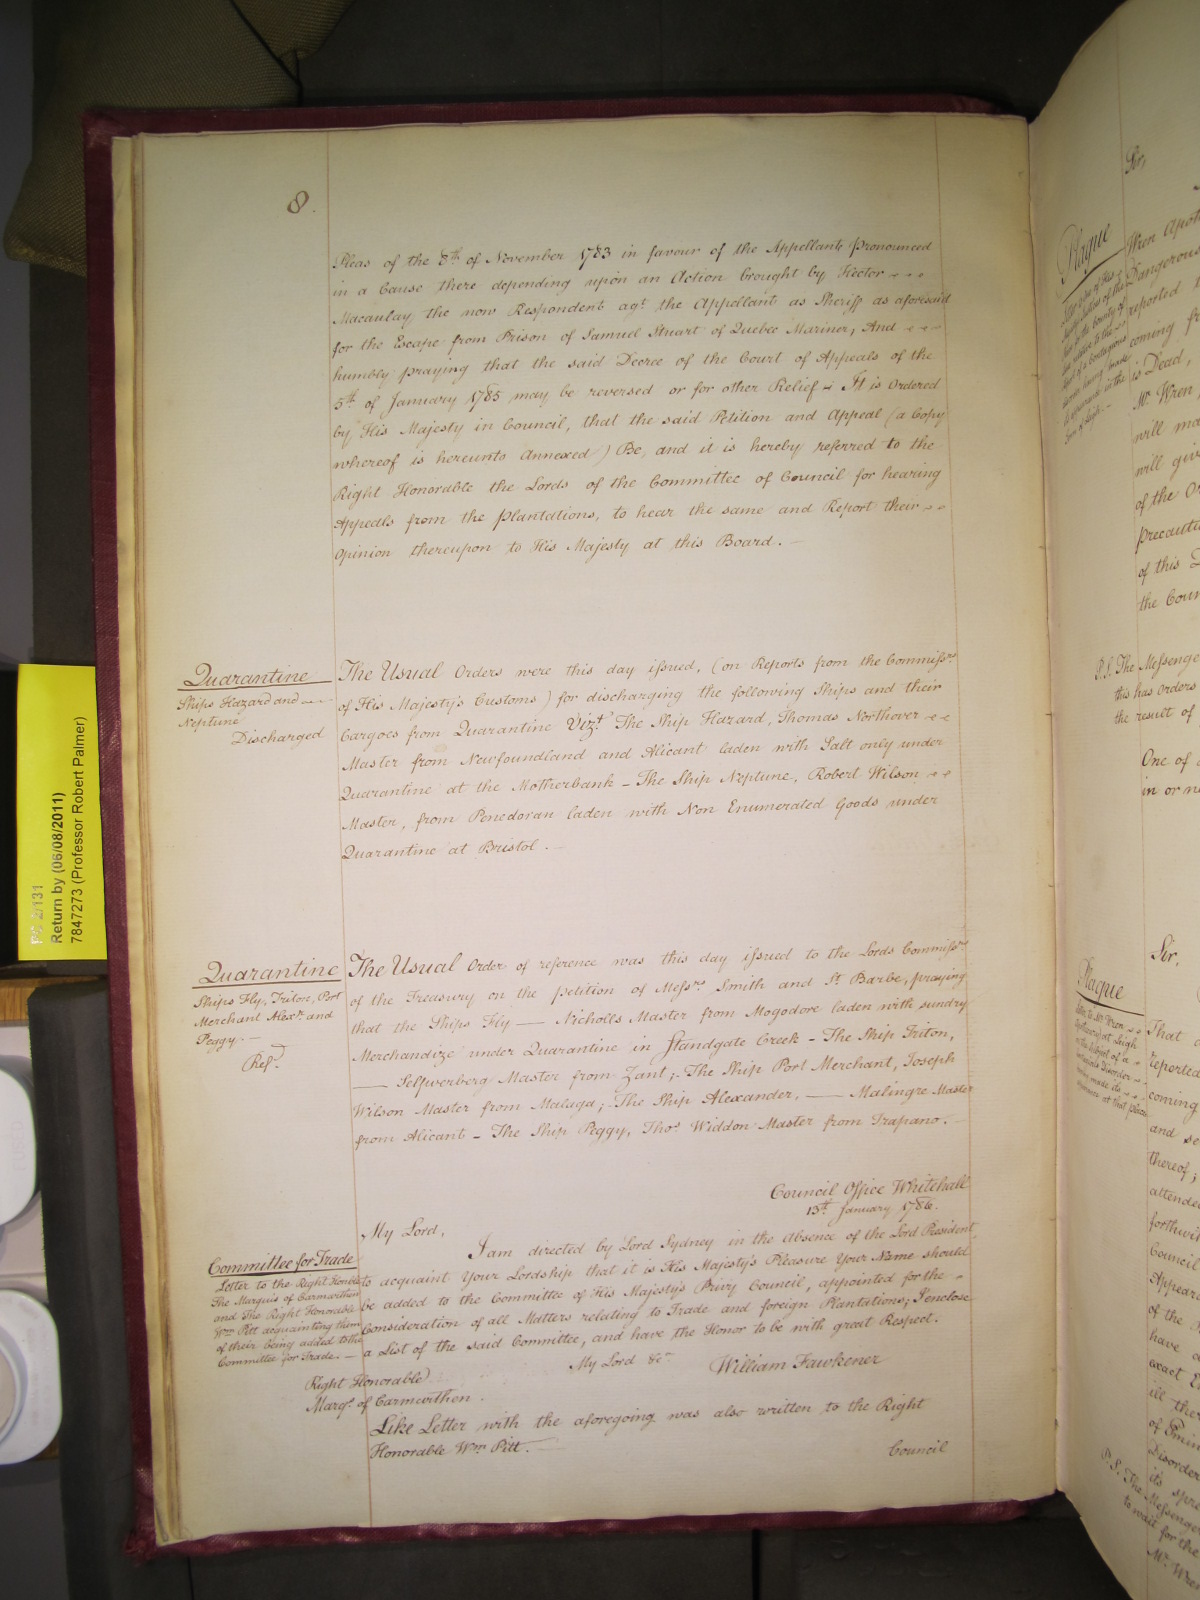 8.
Pleas of the 8th of November 1783 in favour of the Appellant Pronounced
in a Cause there depending upon an Action brought by Hector - - -
Macaulay the now Respondent agt. the Appellant as Sheriff as aforesaid
for the Escape from Prison of Samuel Stuart of Quebec Mariner, And - - -
humbly praying that the said Decree of the Court of Appeals of the
5th of January 1785 may be reversed or for other Relief - It is Ordered
by His Majesty in Council, that the said Petition and Appeal (a Copy
whereof is hereunto Annexed) Be, and it is hereby referred to the
Right Honorable the Lords of the Committee of Council for hearing
Appeals from the Plantations, to hear the same and Report their - -
Opinion thereupon to His Majesty at this Board. -
Quarantine
Ships Hazard and -
Neptune
Discharged
The Usual Orders were this day issued, (on Reports from the Commissrs
of His Majesty's Customs) for discharging the following Ships and their
Cargoes from Quarantine Vizt. The Ship Hazard, Thomas Northover - -
Master from Newfoundland and Alicant laden with Salt only under
Quarantine at the Motherbank - The Ship Neptune, Robert Wilson - -
Master, from Penedoran laden with Non Enumerated Goods under
Quarantine at Bristol. -
Quarantine
Ships Fly, Triton, Port
Merchant Alexr. and
Peggy. -
Refd.
The Usual Order of reference was this day issued to the Lords Commissrs
of the Treasury on the petition of Messrs. Smith and St. Barbe, praying
that the Ships Fly — Nicholls Master from Mogodore laden with sundry
Merchandize under Quarantine in Standgate Creek - The Ship Triton,
— Selfwerberg Master from Zant; - The Ship Port Merchant, Joseph
Wilson Master from Malaga; The Ship Alexander, — Malingre Master
from Alicant - The Ship Peggy, Thos. Widdon Master from Trapano. -
Council Office Whitehall
13th January 1786.
My Lord,
Committee for Trade
Letter to the Right Honble
The Marquis of Carmarthen
and The Right Honorable
Wm. Pitt acquainting them
of their being added to the
Committee for Trade. -
I am directed by Lord Sydney in the Absence of the Lord President,
to acquaint Your Lordship that it is His Majesty's Pleasure Your Name should
be added to the Committee of His Majesty's Privy Council, appointed for the -
Consideration of all Matters relating to Trade and foreign Plantations; I enclose
a List of the said Committee, and have the Honor to be with great Respect.
My Lord &c.
William Fawkener
Right Honorable
Marqs. of Carmarthen.
Like Letter with the aforegoing was also written to the Right
Honorable Wm. Pitt. -
Council
PC 2/131
Return by (06/08/2011)
7847273 (Professor Robert Palmer)
Sir,
Plague
Wren Apot
Dangerous
reported t
coming fr
is Dead,
Mr. Wren,
will ma
will giv
of the Or
precautio
of this D
the Coun
P.S. The Messenge
this has orders
the result of
One of
in or ne
Sir.
Plague
That
reported
coming
and se
thereof;
attende
forthwit
Council
Appear
of the
have
exact E
ill the
of Emin
Disorder
its spre
P.S. The Messenger
to wait for the
Mr. Wren